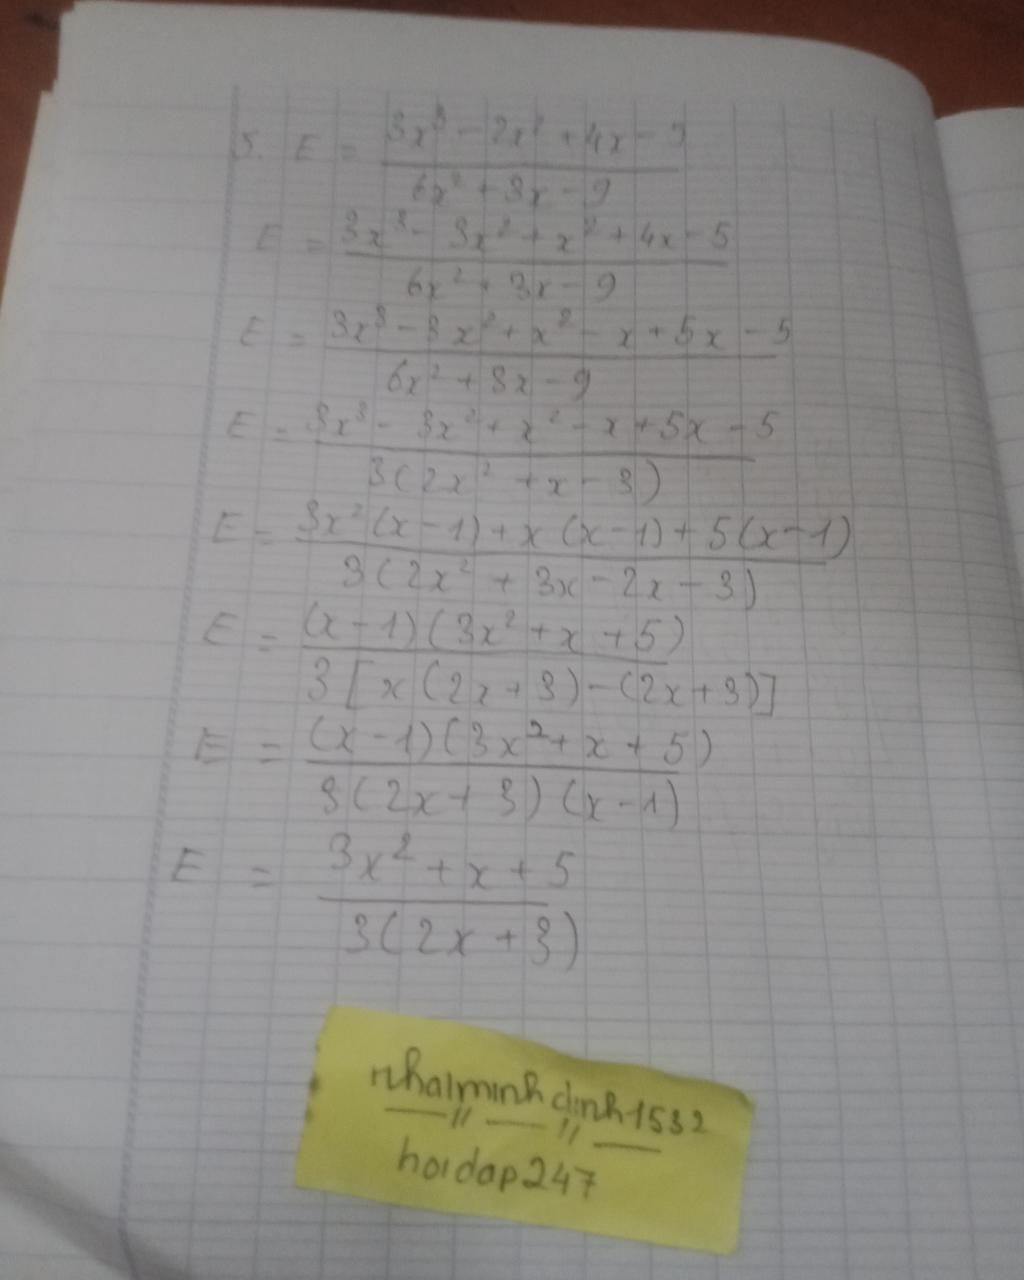 5. E = (3x³ - 2x² + 4x - 5) / (6x² + 3x - 9)
E = (3x³ - 3x² + x² + 4x - 5) / (6x² + 3x - 9)
E = (3x³ - 3x² + x² - x + 5x - 5) / (6x² + 3x - 9)
E = (3x³ - 3x² + x² - x + 5x - 5) / (3(2x² + x - 3))
E = (3x²(x-1) + x(x-1) + 5(x-1)) / (3(2x² + 3x - 2x - 3))
E = ((x-1)(3x² + x + 5)) / (3[x(2x+3) - (2x+3)])
E = ((x-1)(3x² + x + 5)) / (3(2x+3)(x-1))
E = (3x² + x + 5) / (3(2x+3))
nhalminhdinh1532
hoidap247